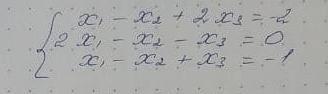 x₁ - x₂ + 2x₃ = -2
2x₁ - x₂ - x₃ = 0
x₁ - x₂ + x₃ = -1